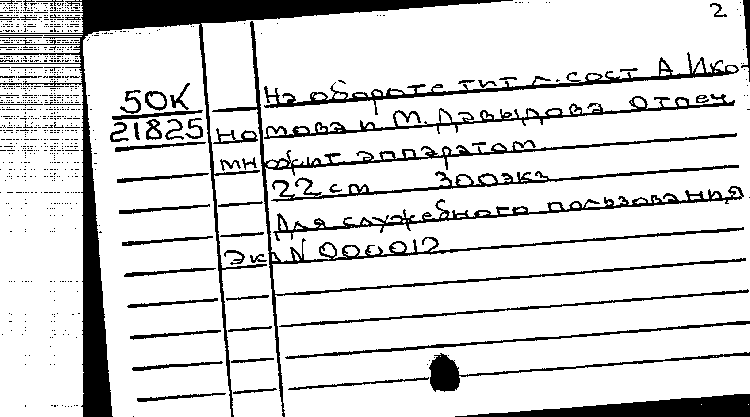 2
50К
21825
На обороте тит л. сост А Ико-
номова и М. Давыдова Отпеч
множит аппаратом
22 cm 300экз
Для служебного пользования
Экз N 000012